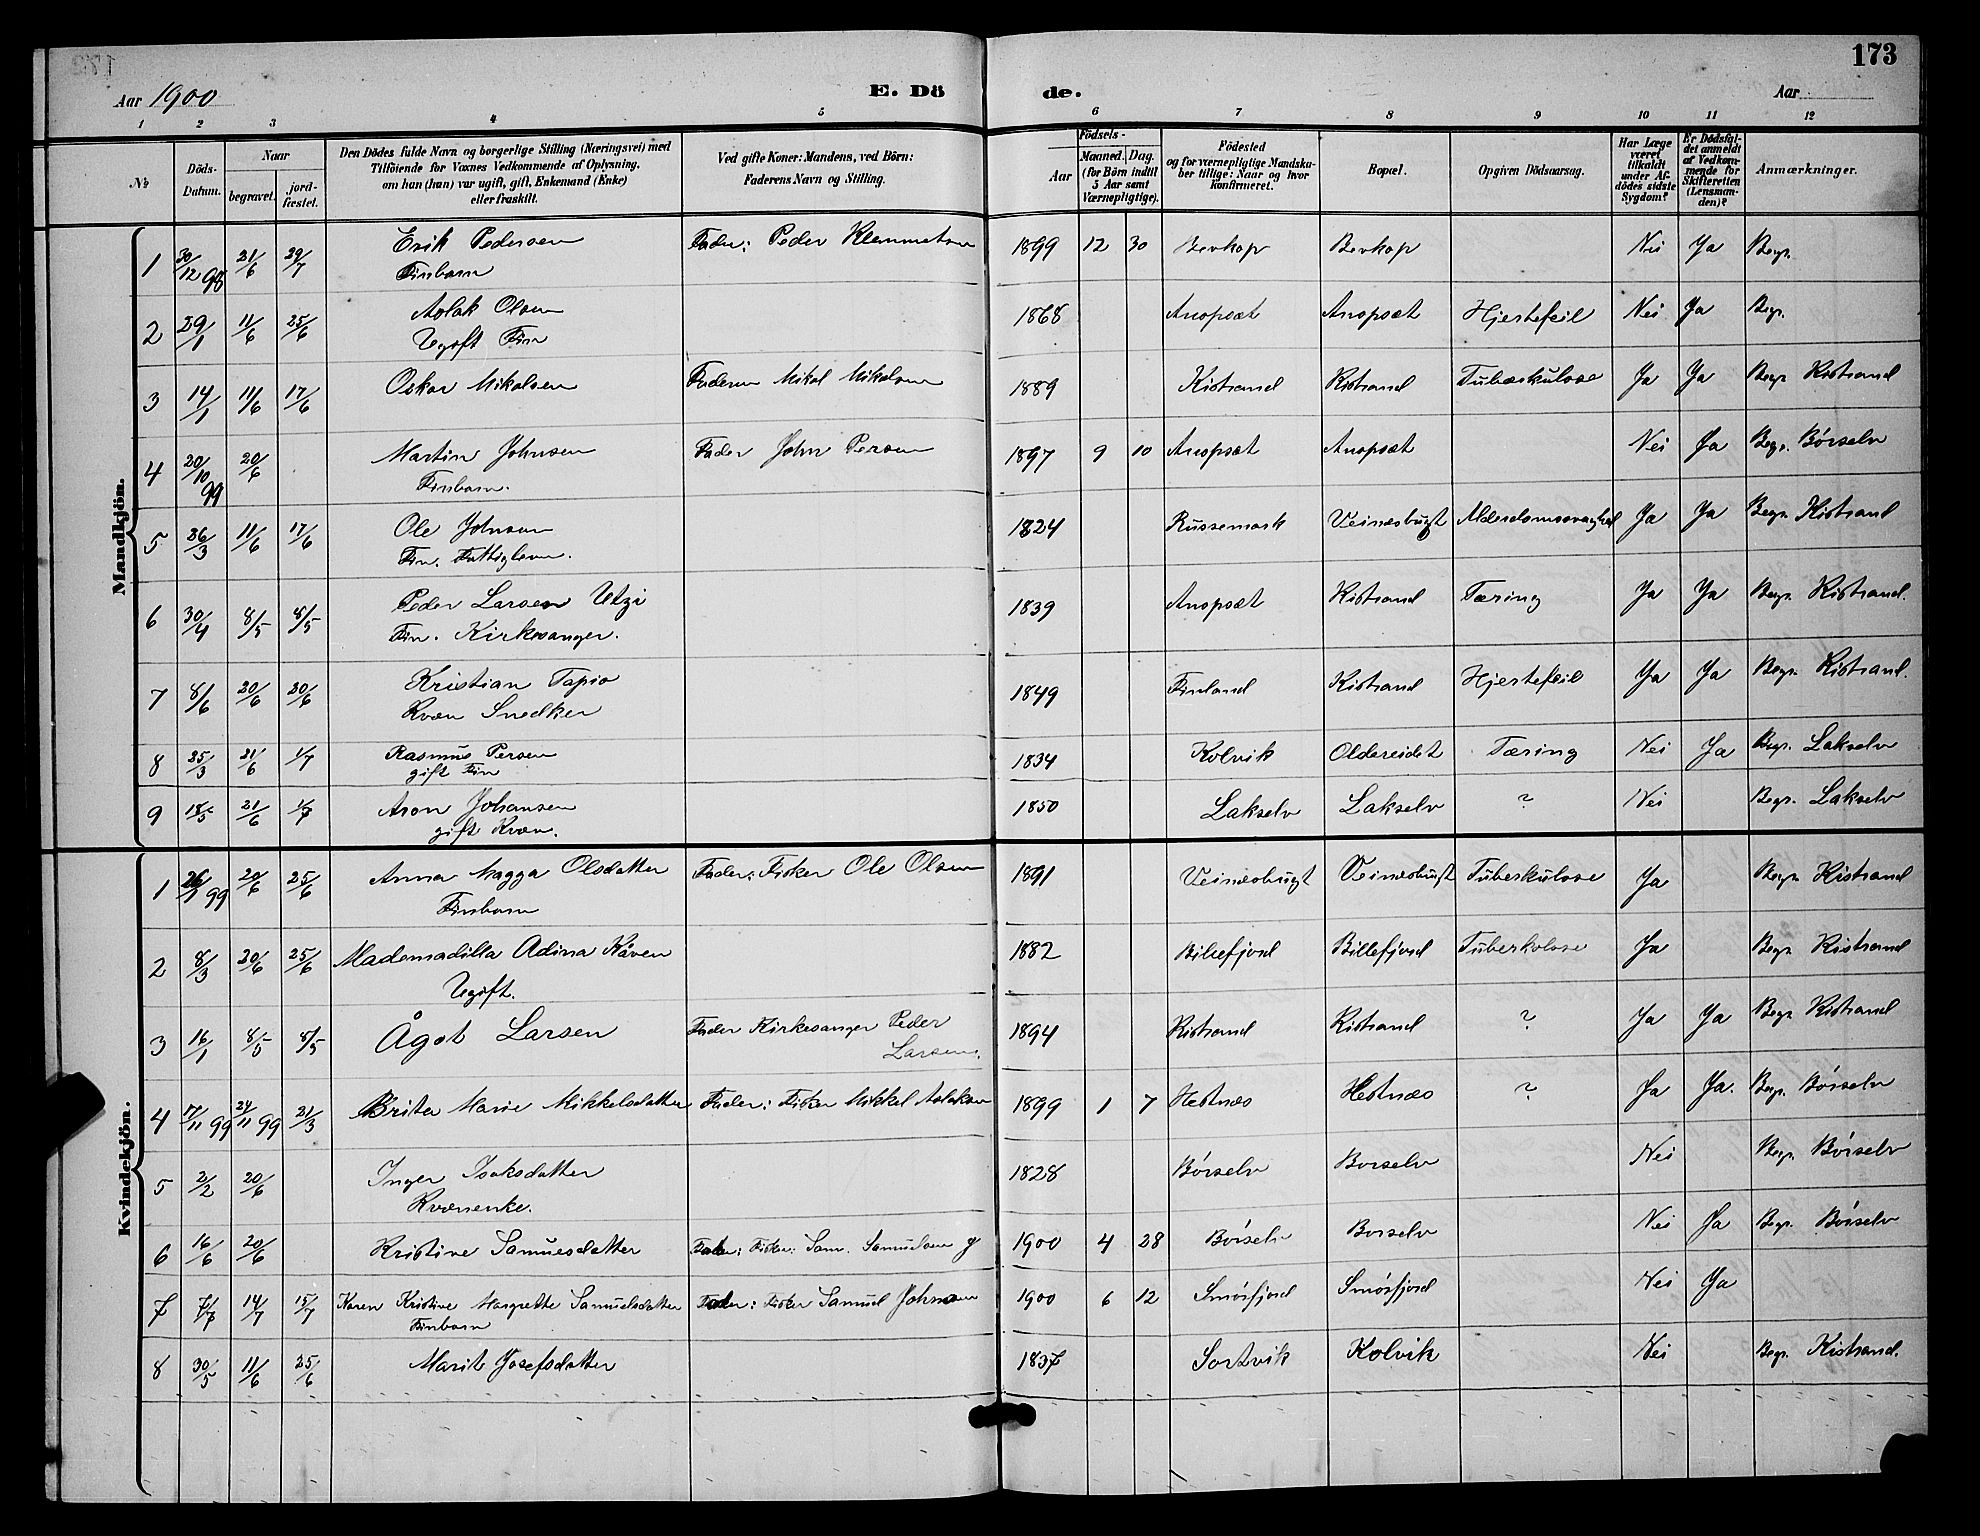 173
Aar 1900 E. Dö de. Aar
1 2 3 4 5 6 7 8 9 10 11 12
№
Döds-Datum.
Naar
begravet.
jord-fæstet.
Den Dödes fulde Navn og borgerlige Stilling (Næringsvei) med
Tilföiende for Voxnes Vedkommende af Oplysning,
om han (hun) var ugift, gift, Enkemand (Enke)
eller fraskilt.
Ved gifte Koner: Mandens, ved Börn:
Faderens Navn og Stilling.
Födsels-
Aar
Maaned. Dag.
(for Börn indtil
5 Aar samt
Værnepligtige).
Födested
og for værnepligtige Mandska-
ber tillige: Naar og hvor
konfirmeret.
Bopæl.
Opgiven Dödsaarsag.
Har Læge
været
tilkaldt
under Af-
dödes sidste
Sygdom?
Er Dödsfal-
det anmeldt
af Vedkom-
mende for
Skifteretten
(Lensman-
den)?
Anmærkninger.
Mandkjön.
1 30/12 98 21/6 29/7 Erik Pedersen Fader: Peder Klemmetsen 1899 12 30 Bevkop Bevkop Nei Ja Begr.
Finbarn
2 29/1 11/6 25/6 Aslak Olsen 1868 Anopsæt Anopsæt Hjertefeil Nei Ja Begr.
Ugift Fin
3 14/1 11/6 17/6 Oskar Mikalsen Faderen Mikal Mikalsen 1889 Kistrand Kistrand Tuberkulose Ja Ja Begr. Kistrand
4 20/10 99 20/6 Martin Johnsen Fader John Persen 1897 9 10 Anopsæt Anopsæt Nei Ja Begr. Börselv
Finbarn.
5 26/3 11/6 17/6 Ole Johnsen 1824 Russemark Veinesbugt Alderdomssvaghed Ja Ja Begr. Kistrand
Fin. Fattiglem.
6 30/4 8/5 8/5 Peder Larsen Utzi 1839 Anopsæt Kistrand Tæring Ja Ja Begr. Kistrand.
Fin. Kirkesanger.
7 8/6 20/6 20/6 Kristian Tapio 1849 Finland Kistrand Hjertefeil Ja Ja Begr. Kistrand.
Kvæn Snedker
8 25/3 21/6 1/7 Rasmus Persen 1834 Kolvik Oldereidet Tæring Nei Ja Begr. Lakselv
gift Fin
9 18/5 21/6 1/7 Aron Johansen 1850 Lakselv Lakselv ? Nei Begr. Lakselv
gift Kvæn.
Kvindekjön.
1 99 20/6 25/6 Anna Magga Olsdatter Fader: Fisker Ole Olsen 1891 Veinesbugt Veinesbugt Tuberkulose Ja Begr. Kistrand
Finbarn
2 8/3 20/6 25/6 Mademadilla Adina Kåven 1882 Billefjord Billefjord Tuberkolose Ja Begr. Kistrand
Ugift.
3 16/1 8/5 8/5 Ågot Larsen Fader Kirkesanger Peder 1894 Kistrand Kistrand ? Ja Ja Begr. Kistrand
Larsen.
4 17/11 99 24/11 99 21/3 Brita Marie Mikkelsdatter Fader: Fisker Mikkel Aslaksen 1899 1 7 Hestnæs Hestnæs ? Ja Ja. Begr. Börselv
5 2/2 20/6 Inger Isaksdatter 1828 Börselv Borselv Nei Begr. Börselv
Kvænenke.
6 16/6 20/6 Kristine Samuesdatter Fader: Fisker: Sam. Samuelsen 1900 4 28 Börselv Borselv Nei Ja Begr. Börselv
7 7/7 14/7 15/7 Karen Kristine Margrethe Samuelsdatter Fader: Fisker Samuel Johnsen 1900 6 12 Smörfjord Smörfjord Nei Ja
Finbarn
8 30/5 11/6 25/6 Marit Josefsdatter 1837 Sortvik Kolvik Nei Begr. Kistrand.